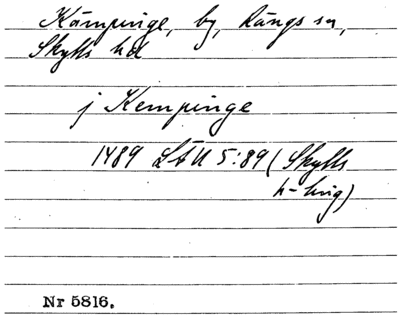 Kämpinge, by, Rängs sn,
Skytts hd
j Kempinge
1489 LÅU 5:89 (Skytts
h-ting)
Nr 5816.